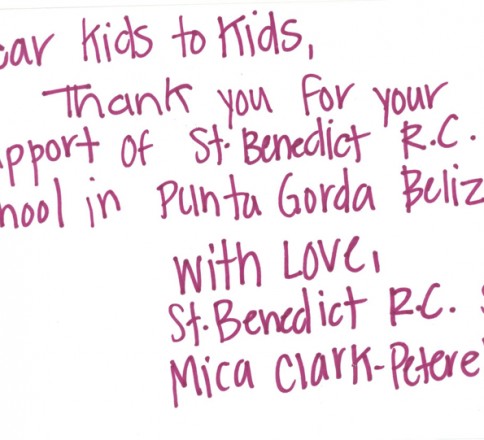 ear Kids to Kids,
Thank you for your
upport of St. Benedict R.C.
hool in Punta Gorda Beliz
With Love,
St. Benedict R.C. S
Mica Clark-Petere